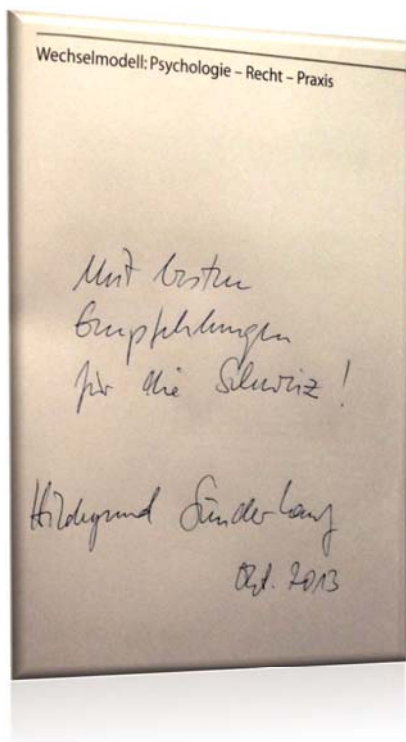 Wechselmodell: Psychologie – Recht – Praxis
Mit besten
Empfehlungen
für die Schweiz!
Hildegund Sünderhauf
Okt. 2013